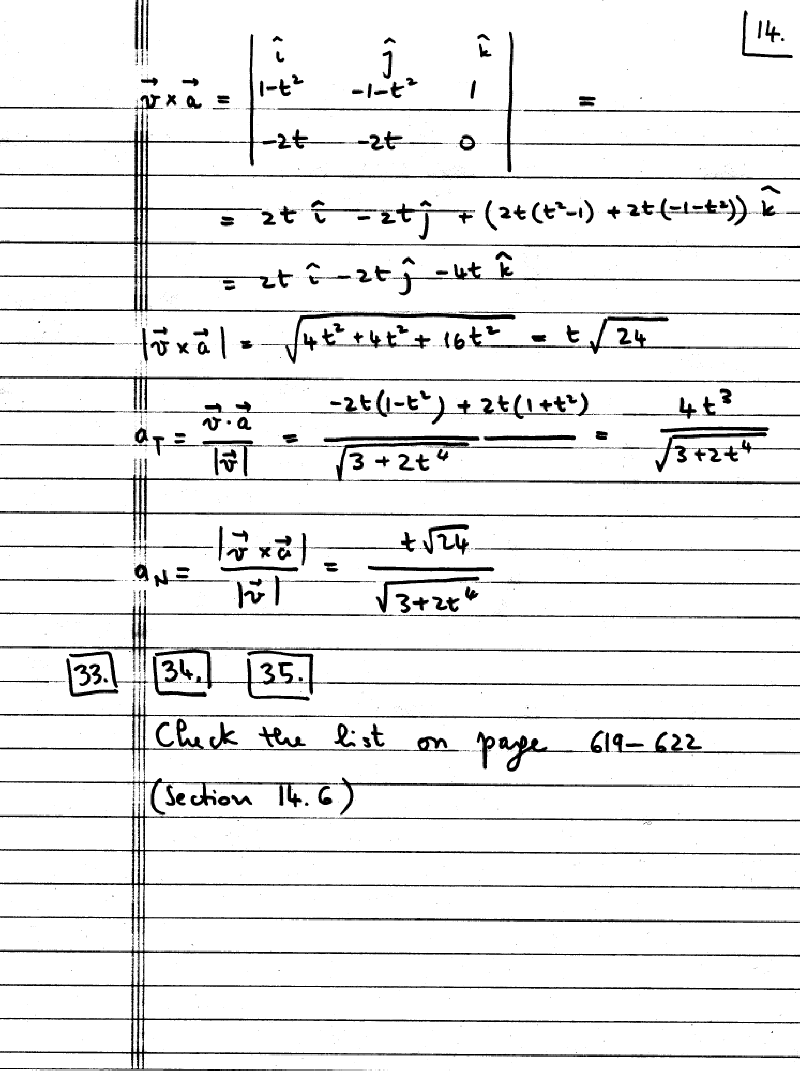 14.
î ĵ k̂
v⃗ × a⃗ = | 1-t² -1-t² 1 | =
-2t -2t 0
= 2t î - 2t ĵ + (2t(t²-1) + 2t(-1-t²)) k̂
= 2t î - 2t ĵ - 4t k̂
|v⃗ × a⃗| = √(4t² + 4t² + 16t²) = t √24
a_T = (v⃗ · a⃗)/|v⃗| = (-2t(1-t²) + 2t(1+t²))/√(3 + 2t⁴) = 4t³/√(3+2t⁴)
a_N = |v⃗ × a⃗|/|v⃗| = t√24/√(3+2t⁴)
33. 34. 35.
Check the list on page 619-622
(Section 14.6)